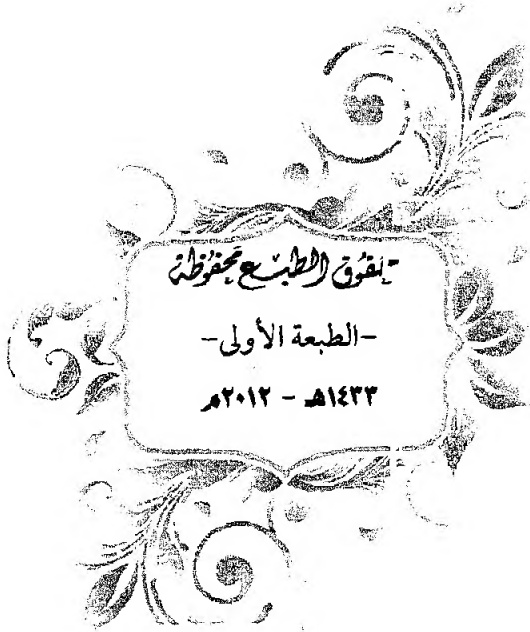 حقوق الطبع محفوظة
-الطبعة الأولى-
١٤٣٣هـ - ٢٠١٢م